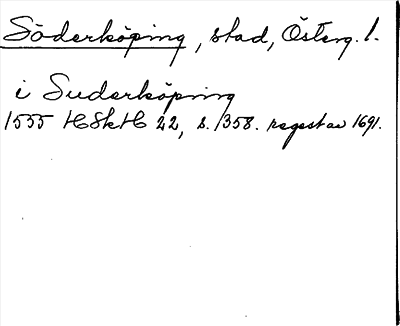 Söderköping, stad, Österg. l.
i Suderköping
1535 HSkH 22, s. 358. regest av 1691.